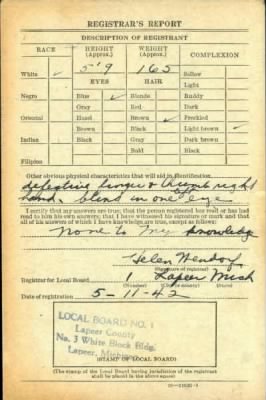 REGISTRAR'S REPORT
DESCRIPTION OF REGISTRANT
RACE HEIGHT (Approx.) WEIGHT (Approx.) COMPLEXION
5'9 165 Sallow
White ✓ EYES HAIR Light
Negro Blue ✓ Blonde Ruddy
Gray Red Dark
Oriental Hazel Brown ✓ Freckled
Brown Black Light brown ✓
Indian Black Gray Dark brown
Bald Black
Filipino
Other obvious physical characteristics that will aid in identification
defective finger & thumb right
hand. blind in one eye
I certify that my answers are true; that the person registered has read or has had
read to him his own answers; that I have witnessed his signature or mark and that
all of his answers of which I have knowledge are true, except as follows:
None to my knowledge
Helen
(Signature of registrar)
Registrar for Local Board 1 Lapeer Mich
Date of registration 5-11-42
LOCAL BOARD NO. 1
Lapeer County
No. 3 White Block Bldg.
Lapeer, Michigan
(STAMP OF LOCAL BOARD)
(The stamp of the Local Board having jurisdiction of the registrant
shall be placed in the above space)